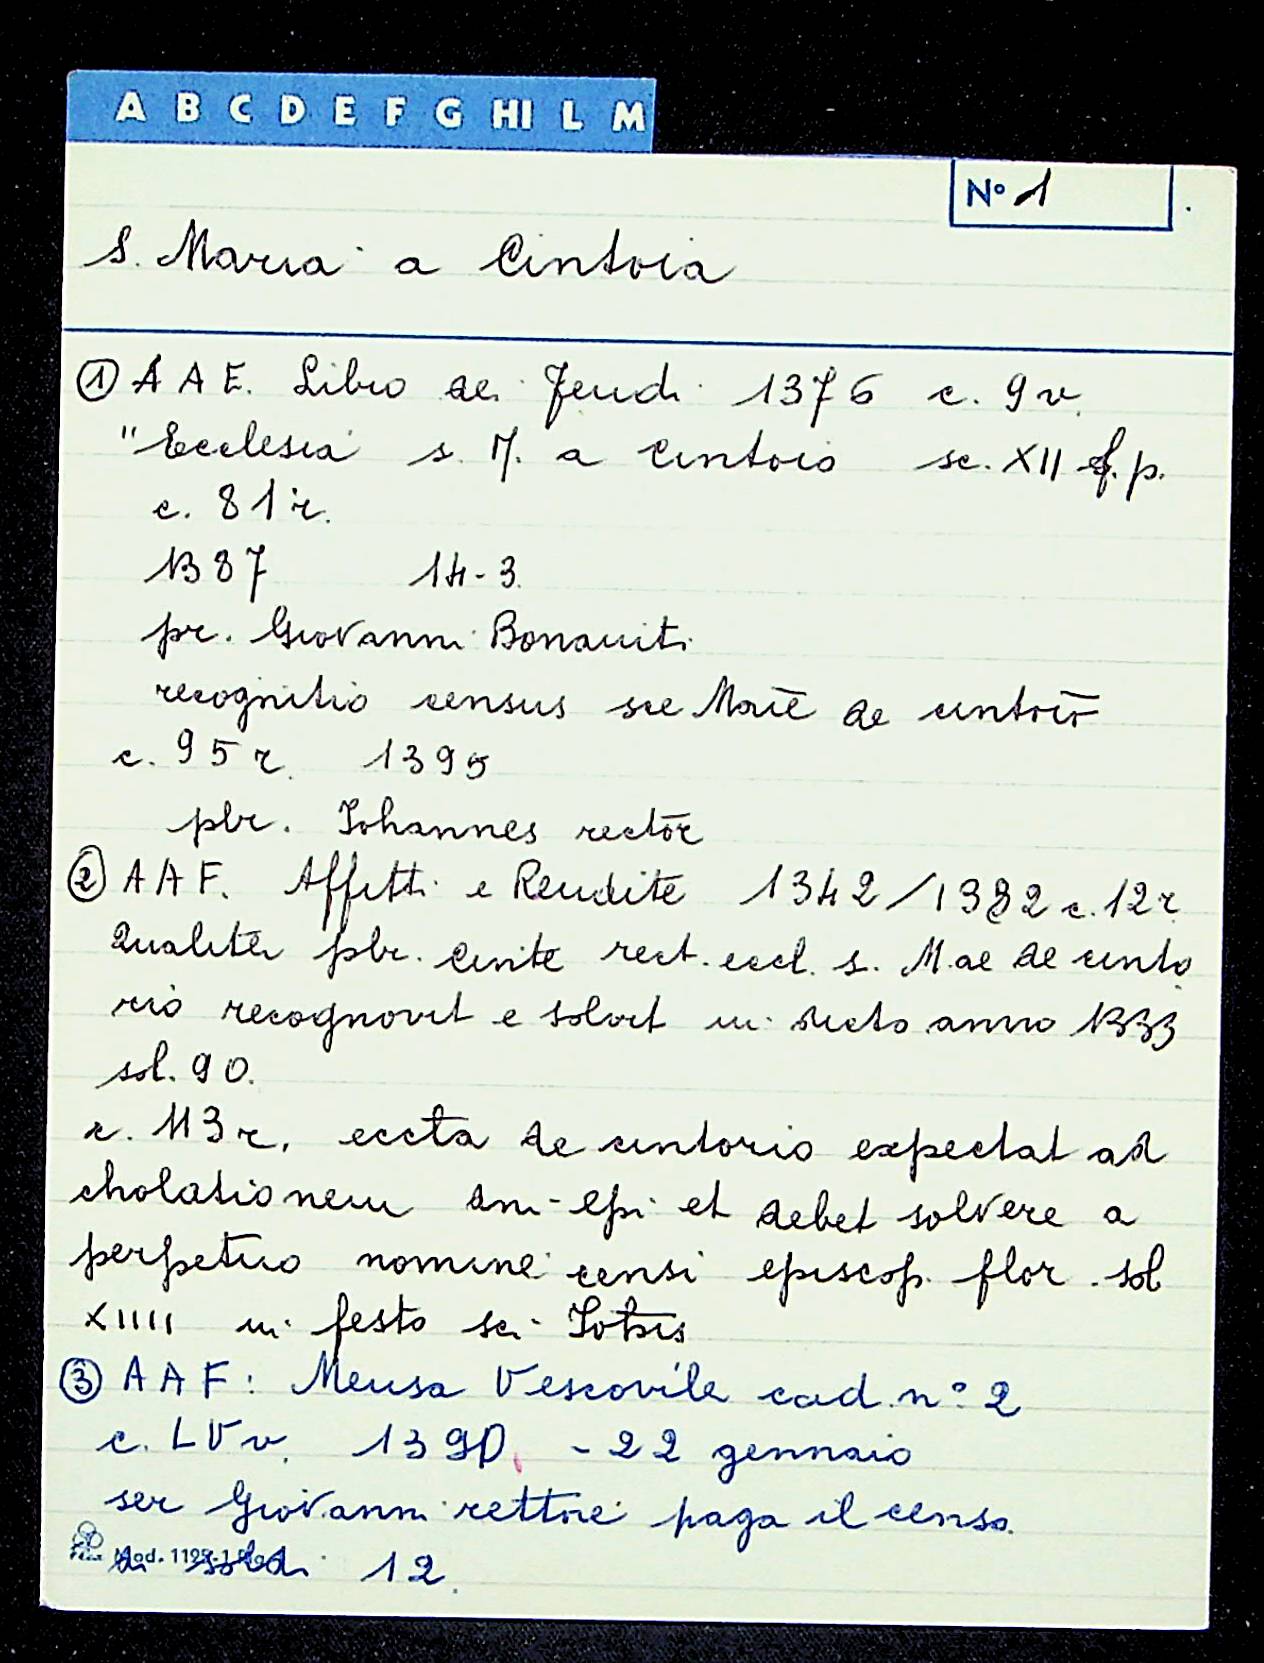 A B C D E F G HI L M
N° 1
S. Maria a Cintoia
① A A E. Libro dei Feudi 1376 c. 9 v.
"Ecclesia s. M. a Cintoia sc. XII f. p.
c. 81 r.
1387 14-3.
pr. Giovanni Bonauiti
recognitio census sce Marie de cintoia
c. 95 r. 1395
pbr. Iohannes rector
② A A F. Affitti e Rendite 1342/1382 c. 12 r.
Qualiter pbr. rect. eccl. s. M.ae de cinto
rio recognovit e solvit in dicto anno 1333
sol. 90.
c. 113 r. eccta de cintorio expectat ad
cholationem dni epi et debet solvere a
perpetuo nomine censi episcop. flor. sol
XIIII in festo sci Iohis
③ A A F: Mensa Vescovile cod. n° 2
c. LV v. 1390. - 22 gennaio
ser Giovanni rettore paga il censo
di soldi 12.
Mod. 1129-1